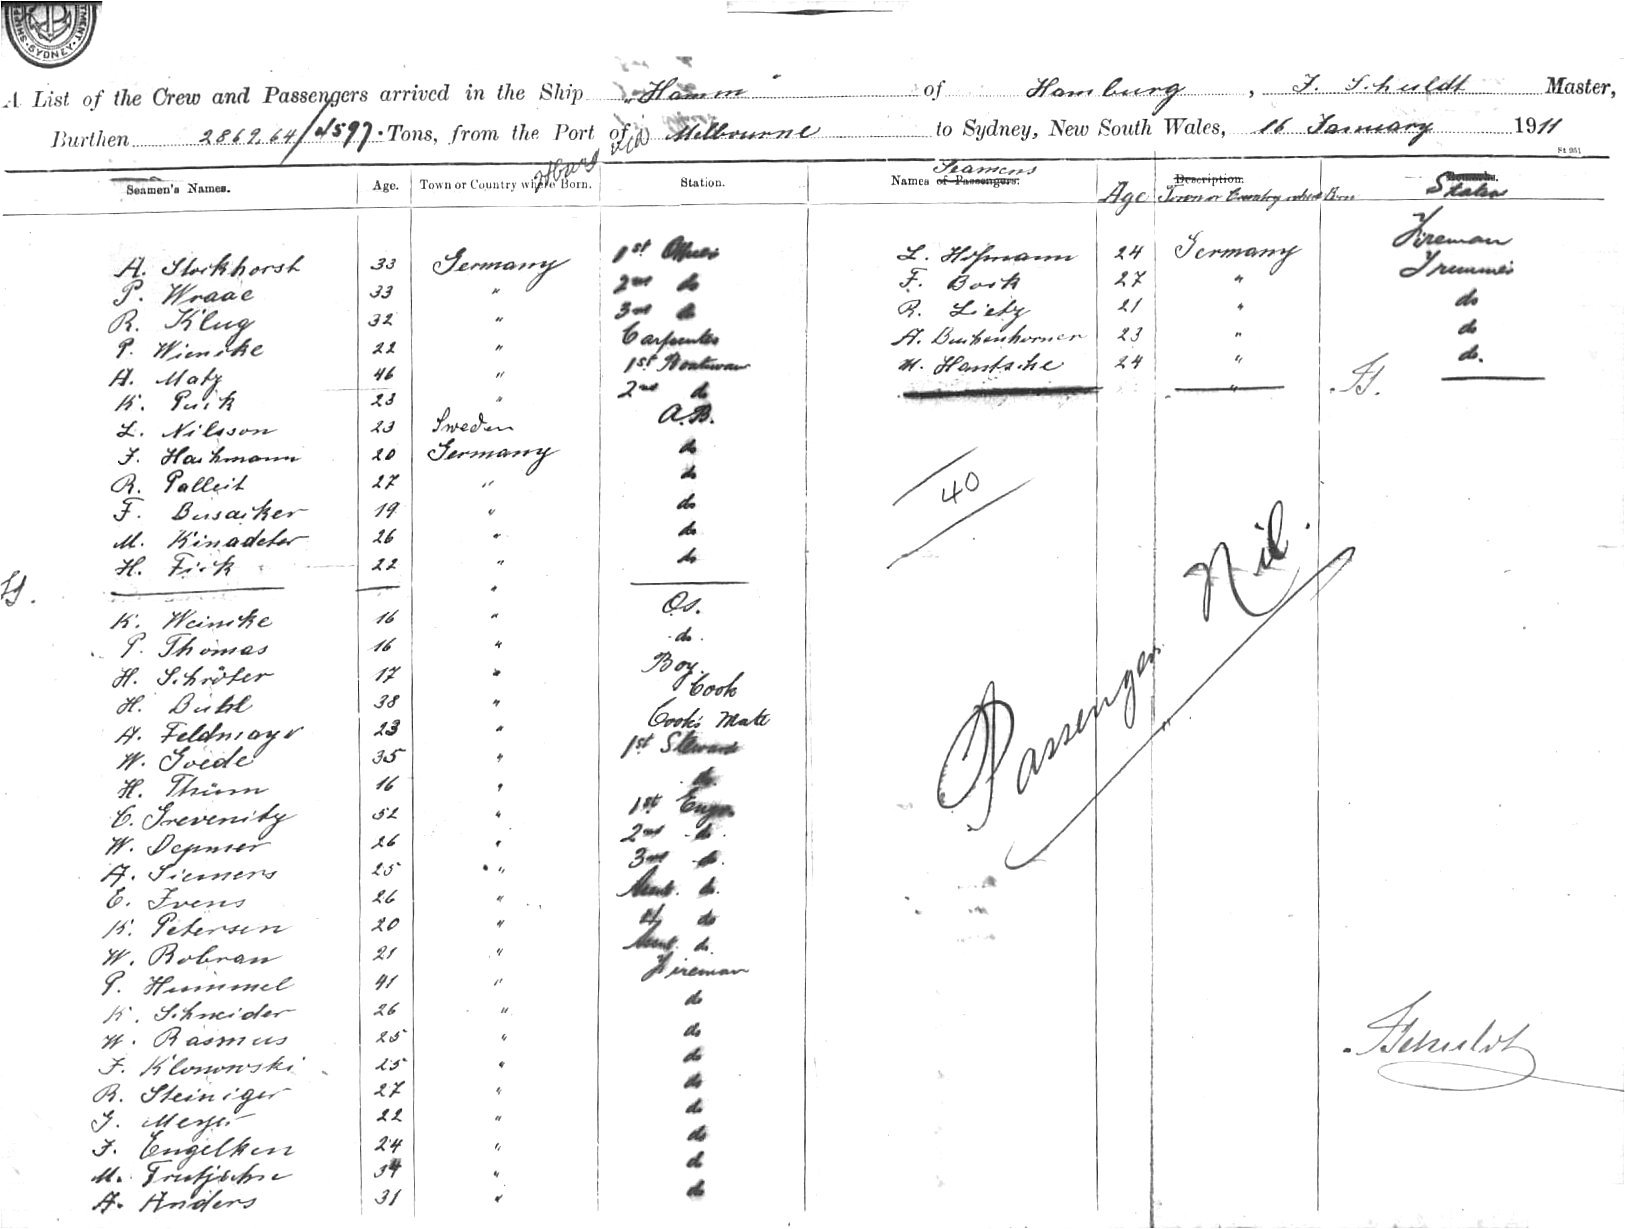 SYDNEY
A List of the Crew and Passengers arrived in the Ship "Hamm" of Hamburg, F. Schuldt Master,
Burthen 2869.64/4597. Tons, from the Port of via Melbourne to Sydney, New South Wales, 16 January 1911
St 951
Seamen's Names. Age. Town or Country where Born. Station. Names of Passengers. Seamens Age Description. Town or Country where Born Station
A. Stockhorst 33 Germany 1st Officer
P. Wraae 33 " 2nd do
R. Klug 32 " 3rd do
P. Wiencke 22 " Carpenter
A. Matz 46 " 1st Boatswain
K. Puck 23 " 2nd do
L. Nilsson 23 Sweden A.B.
F. Hachmann 20 Germany do
R. Palleit 27 " do
F. Busacker 19 " do
M. Kinadeter 26 " do
H. Fick 22 " do
"
K. Weincke 16 " O.S.
P. Thomas 16 " do.
H. Schröter 17 " Boy.
H. Buhl 38 " Cook
A. Feldmayr 23 " Cook's Mate
W. Goede 35 " 1st Steward
H. Thum 16 " do.
C. Grevenitz 52 " 1st Engr.
W. Depmer 26 " 2nd do.
A. Siemens 25 " 3rd do.
E. Ivens 26 " do.
K. Petersen 20 " 4 do
W. Robran 21 " do.
P. Hummel 41 " Fireman
K. Schneider 26 " do
W. Rasmus 25 " do
F. Klonowski 25 " do
R. Steiniger 27 " do
G. Meyer 22 " do
F. Engelken 24 " do
M. 34 " do
A. Anders 31 " do
L. Hofmann 24 Germany Fireman
F. Bock 27 " Trimmer
R. Lietz 21 " do
A. Buchenhorner 23 " do
M. Hantsche 24 " do.
"
40
Passengers Nil.
F Schuldt